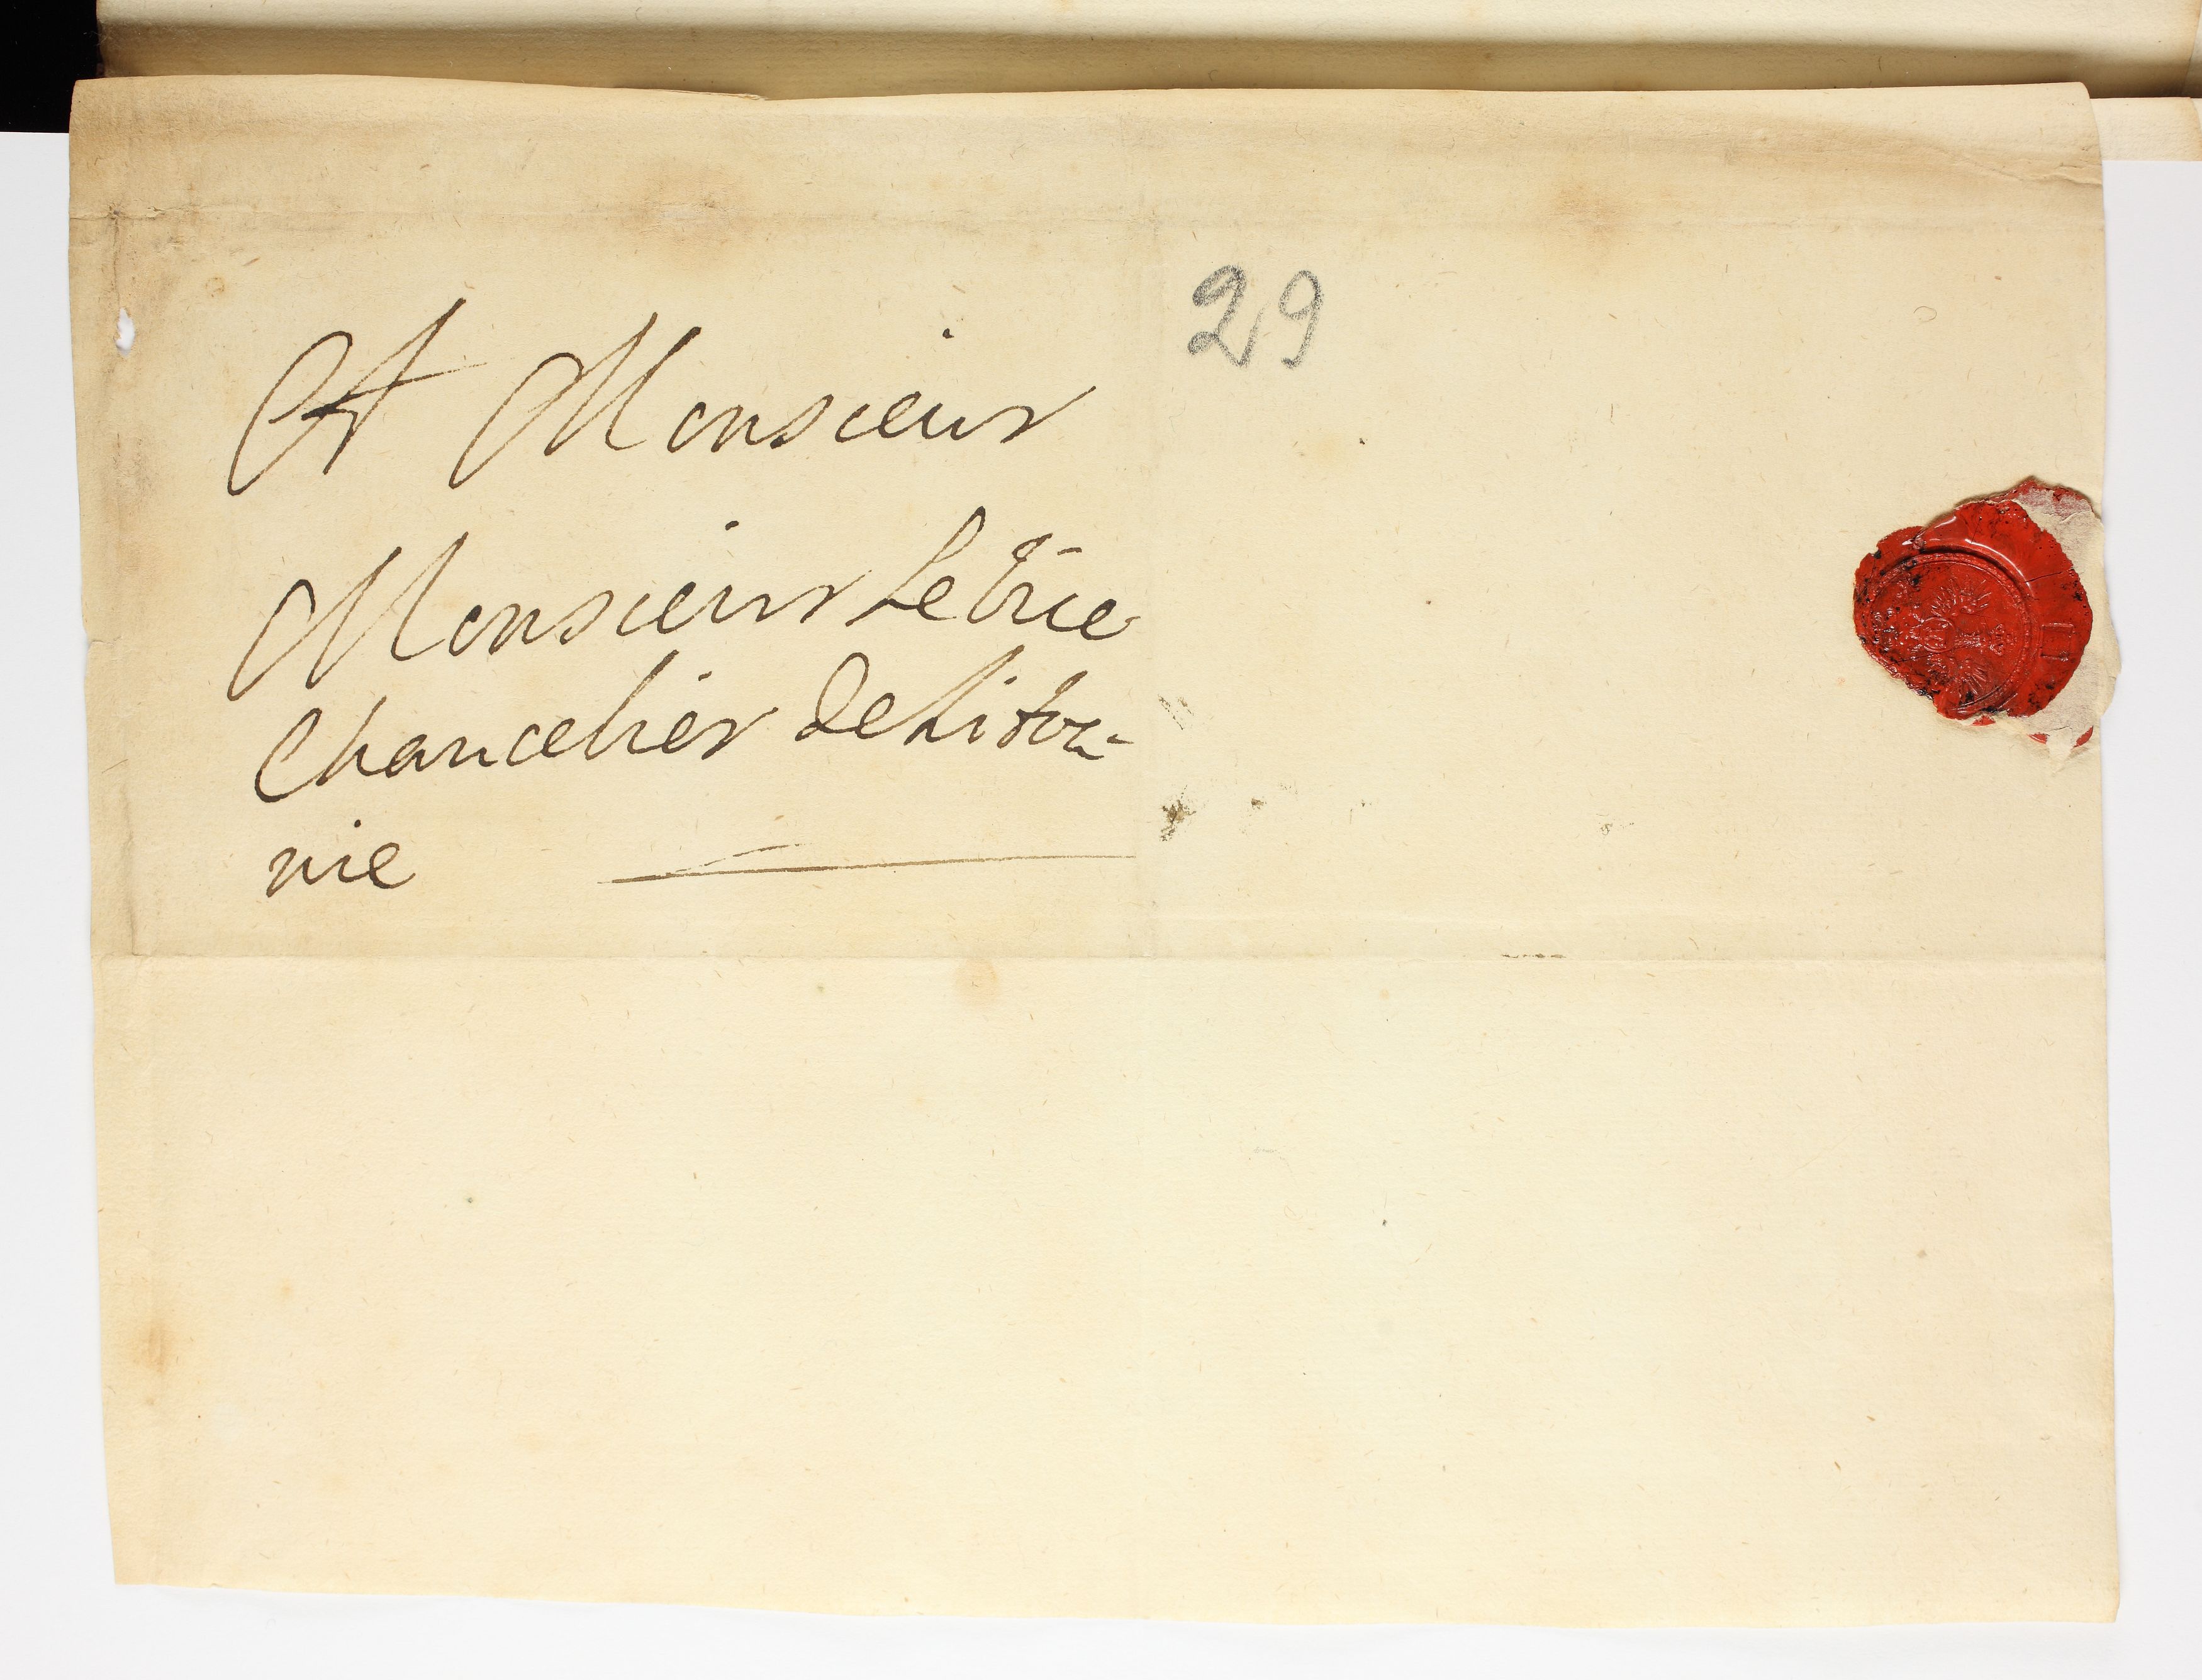 A Monsieur
29
Monsieur Le Vice
Chancelier de Litoua-
nie